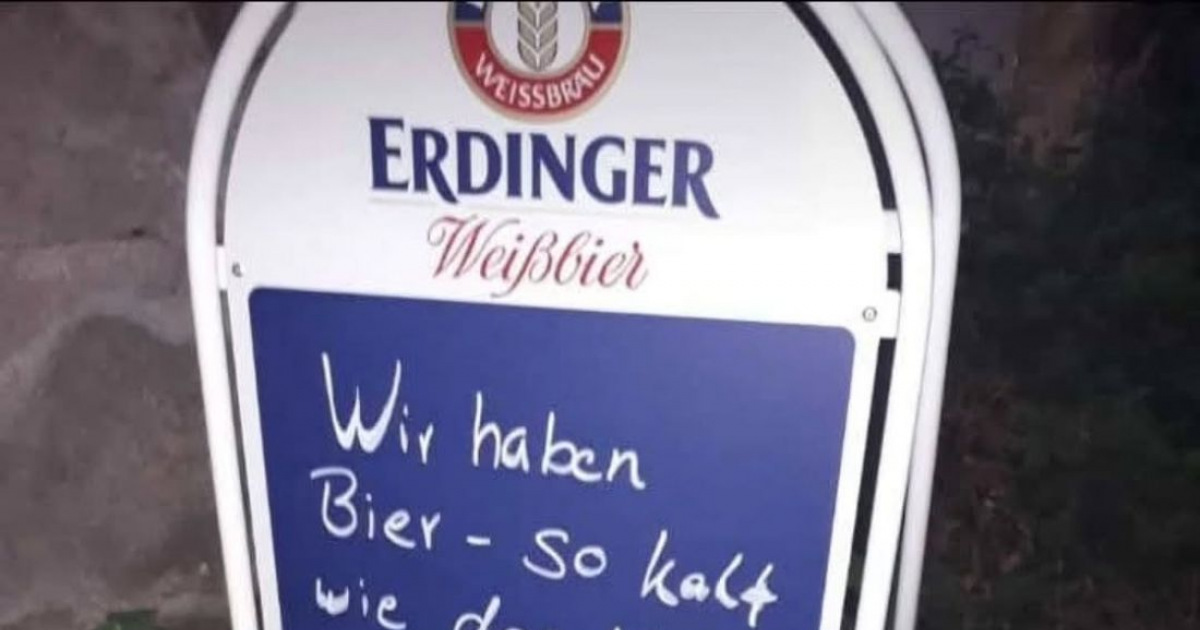 WEISSBRÄU
ERDINGER
Weißbier
Wir haben
Bier - so kalt
wie